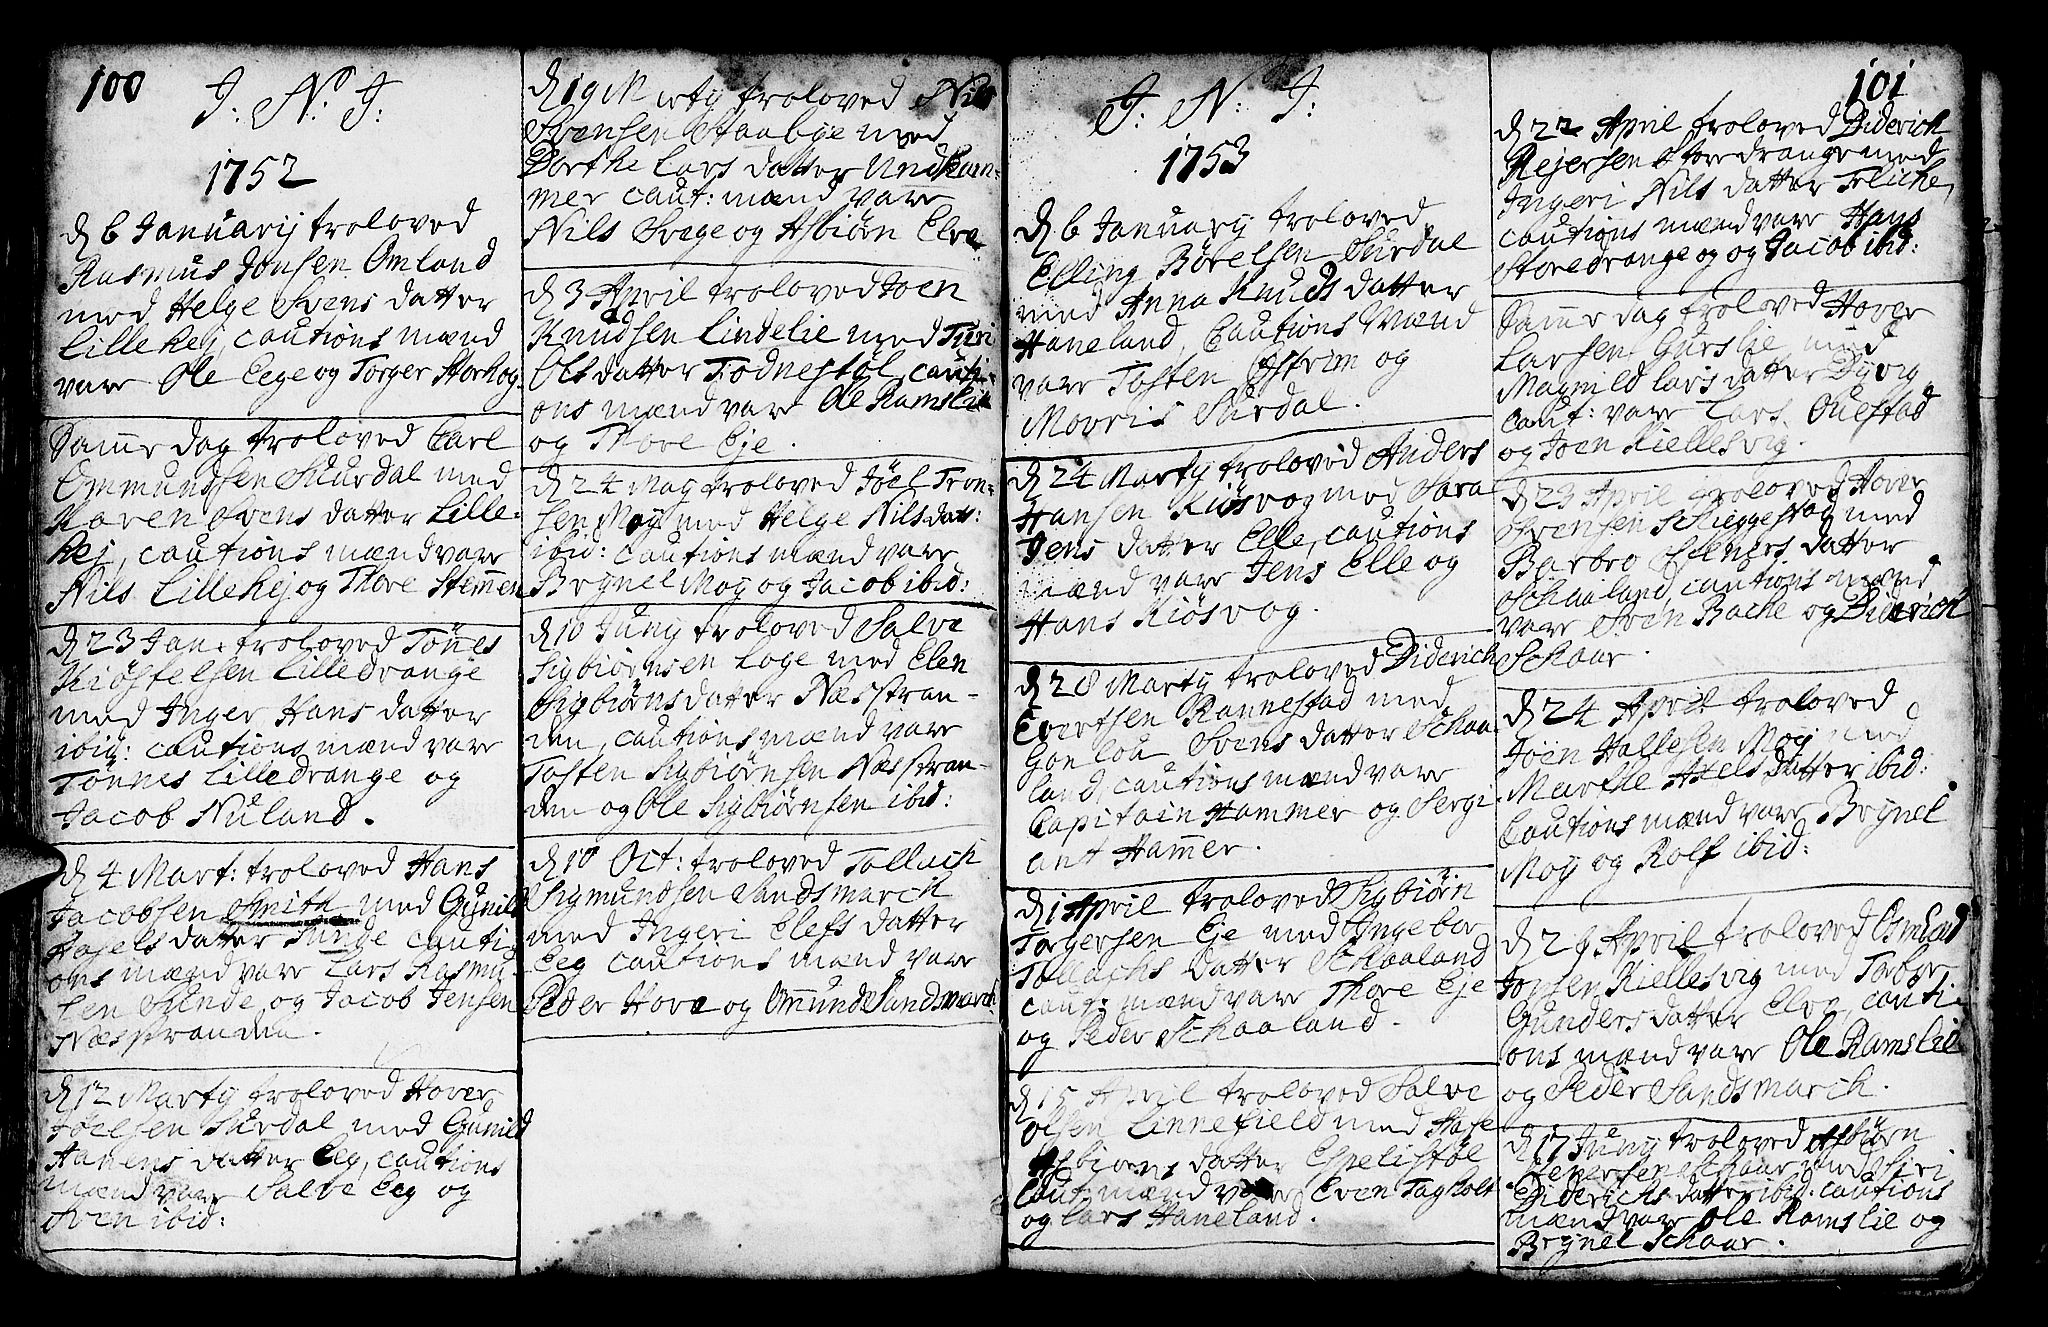 100
J: N: J:
1752
d 6 Januarij troloved
Rasmus Jonsen Omland
med Helge Svens datter
Lillehej, cautions mænd
vare Ole Eege og Torger Storhog
Samme dag troloved Carl
Ommundsen Skurdal med
Karen Svens datter Lille-
hej, cautions mænd vare
Nils Lillehej og Thore Stemmen
d 23 Jan: troloved Tönnes
Kiöstelsen Lilledrange
med Inger Hans datter
ibid: cautions mænd vare
Tönnes Lilledrange og
Jacob Nuland.
d 4 Mart: troloved Hans
Jacobsen Smith med Gunild
datter Sunde cauti-
ons mænd vare Lars Rasmu-
sen Sunde og Jacob Jensen
Næsstranden.
d 12 Martij troloved Hover
Jöelsen Surdal med Gunild
Hanens datter Eeg, cautions
mænd vare Salve Eeg og
Sven ibid:
d 19 Martij troloved Nils
Svensen Staabye med
Dorthe Lars datter Undham-
mer caut: mænd vare
Nils Svege og Asbiörn Elve
d 3 April troloved Joen
Knudsen Lindelie med Turi
Ols datter Todnestöl, cauti-
ons mænd vare Ole Ramslie
og Thore Eje.
d 24 Maij troloved Jöel Tron-
sen Moij med Helge Nils datt:
ibid: cautions mænd vare
Brynel Moij og Jacob ibid:
d 10 Junij troloved Salve
Sigbiörnsen Loge med Elen
Sigbiörnsdatter Næsstran-
den, cautions mænd vare
Tosten Sigbiörnsen Næsstran-
den og Ole Sigbiörnsen ibid:
d 10 Oct: troloved Tollach
Sigmundsen Sandsmarch
med Ingeri Elefs datter
Eeg cautions mænd vare
Peder Hove og Ommund Sandsmarch
J: N: J:
1753
d 6 Januarij troloved
Elling Börelsen Surdal
med Anna Knuds datter
Haneland, Cautions Mænd
vare Tosten Östrem og
Movris Surdal.
d 24 Martij troloved Anders
Hansen Kiösvog med Sara
Jens datter Elle, cautions
mænd vare Jens Elle og
Hans Kiösvog.
d 28 Martij troloved Diderich
Evertsen Rannestad med
Gonlou Svens datter Schaa-
land, cautions mænd vare
Capitain Hammer og Sergi-
ant Hammer.
d 1 April troloved Sigbiörn
Torgersen Eje med Ingebor
Tollachs datter Schaaland
caut: mænd vare Thore Eje
og Peder Schaaland.
d 15 April troloved Salve
Olsen Linnefield med
Asbiörns datter Espelistöl
Caut: mænd vare Even Tagholt
og Lars Haneland.
101
d 22 April troloved Diderich
Rejersen Storedrange med
Ingeri Nils datter Frliche,
cautions mænd vare Hans
Storedrange og og Jacob ibid:
Samme dag troloved Hover
Larsen Gurslie med
Magnild Lars datter Dyvig
caut: vare Lars Ouestad
og Joen Kiellesvig.
d 23 April troloved Hover
Svensen Skieggestad med
Barbro datter
Schaaland, cautions mænd
vare Sven Bache og Diderich
Schaar.
d 24 April troloved
Jöen Hallesen Moij med
Marthe Axels datter ibid:
Cautions mænd vare Brynel
Moij og Rolf ibid:
d 29 April troloved Osmund
Jonsen Kiellesvig med Torbor
Gunders datter Elve, cauti-
ons mænd vare Ole Ramslie
og Peder Sandsmarch.
d 17 Junij troloved Asbiörn
Schaar med Siri
Diderichs datter ibid. cautions
mænd vare Ole Ramslie og
Brynel Schaar.